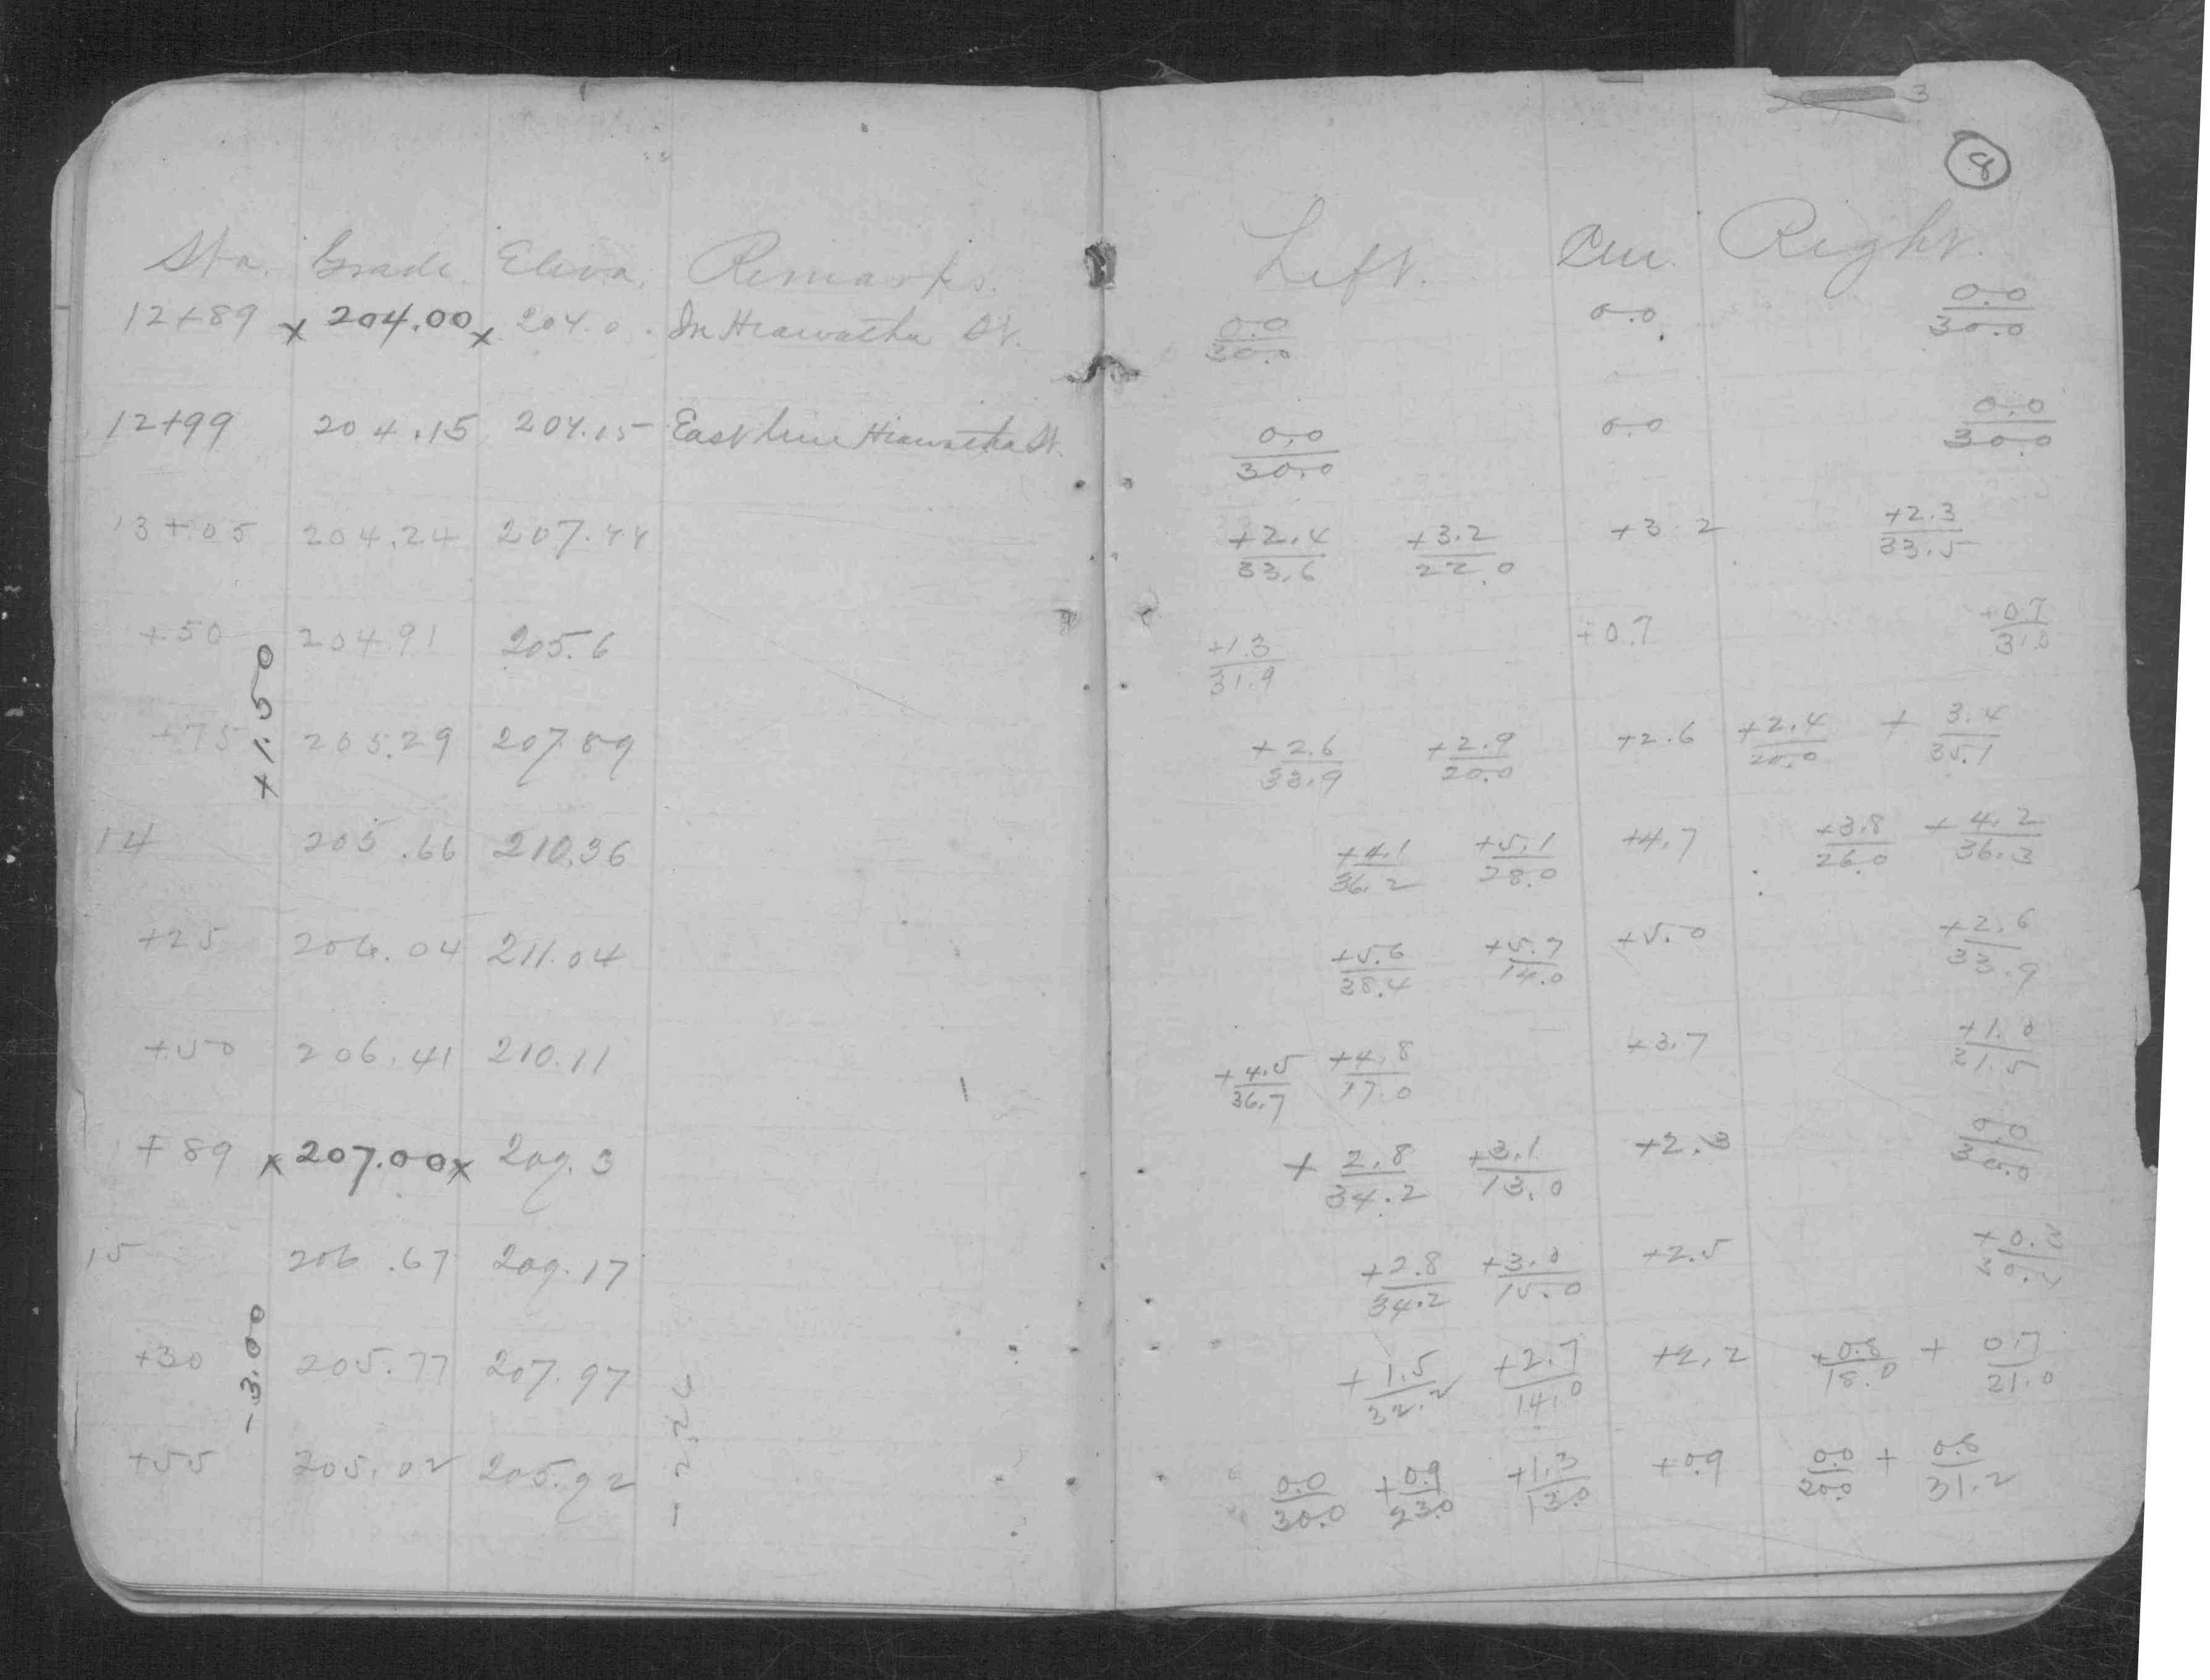 3
8
Sta. Grade. Eleva. Remarks.
12+89 x 204.00 x 204.0. In Hiawatha St.
12+99 204.15 204.15 East line Hiawatha St.
13+05 204.24 207.44
+50 204.91 205.6
+1.50
+75 205.29 207.89
14 205.66 210.36
+25 206.04 211.04
+50 206.41 210.11
+89 x 207.00 x 209.3
15 206.67 209.17
-3.00
+30 205.77 207.97
+55 205.02 205.92
Left. Cen. Right.
0.0/30.0 0.0 0.0/30.0
0.0/30.0 0.0 0.0/30.0
+2.4/33.6 +3.2/22.0 +3.2 +2.3/33.5
+1.3/31.9 +0.7 +0.7/31.0
+2.6/33.9 +2.9/20.0 +2.6 +2.4/20.0 +3.4/35.1
+4.1/36.2 +5.1/28.0 +4.7 +3.8/26.0 +4.2/36.3
+5.6/38.4 +5.7/14.0 +5.0 +2.6/33.9
+4.5/36.7 +4.8/17.0 +3.7 +1.0/31.5
+2.8/34.2 +3.1/13.0 +2.3 0.0/30.0
+2.8/34.2 +3.0/15.0 +2.5 +0.2/30.2
+1.5/32.2 +2.7/14.0 +2.2 +0.8/18.0 +0.7/21.0
0.0/30.0 +0.9/23.0 +1.3/13.0 +0.9 0.0/20.0 +0.8/31.2